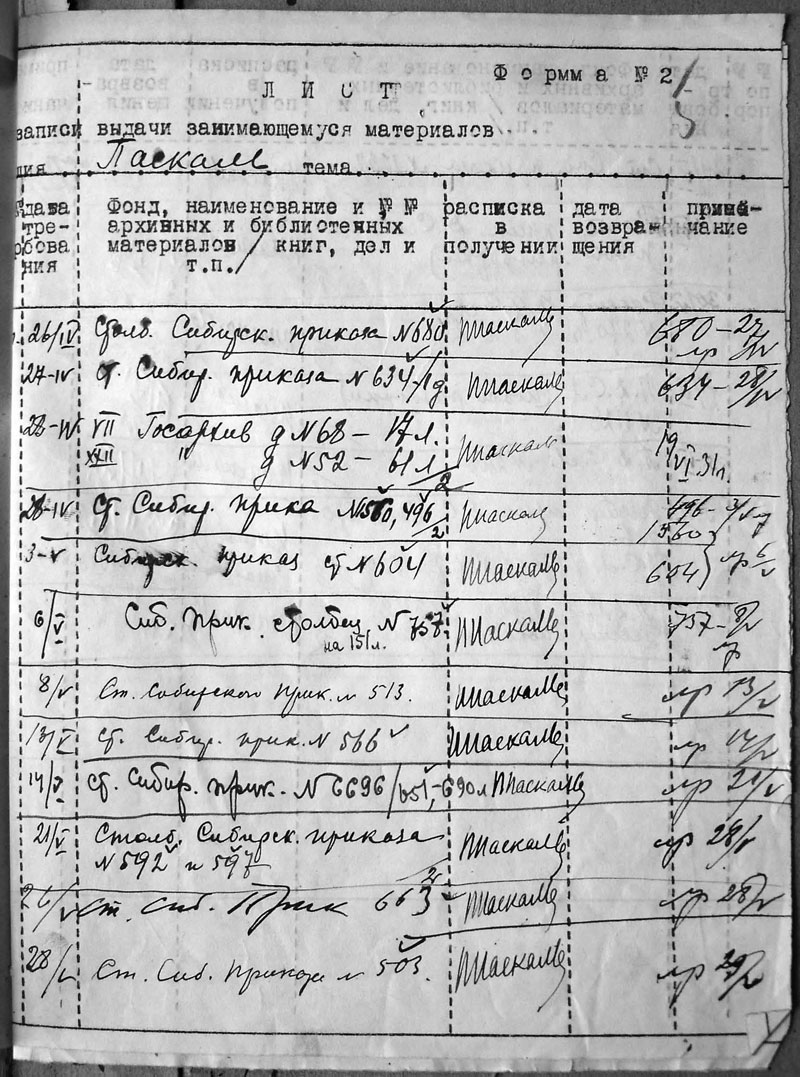 Формма № 2
ЛИСТ
записи выдачи занимающемуся материалов
Паскаль тема
дата требования
Фонд, наименование и №№ архивных и библиотечных материалов/книг, дел и т.п./
расписка в получении
дата возвращения
примечание
26/IV Столб. Сибирск. приказа N 680 ППаскаль 680 –
27-IV ст. Сибир. приказа N 634/ ППаскаль 634 – 28/IV
28-IV VII Госархив д N 68 – 17 л. ППаскаль 19/VI 31 г.
XXII " д N 52 – 61 л.
2
28-IV Ст. Сибир. прика N 560, 496 ППаскаль 496 –
2 1560
3-V Сибирск. приказ ст N 604 ППаскаль 604 6/V
6/V Сиб. прик. столбец N 757 ППаскаль 757 – 8/V
на 151 л.
8/V Ст. Сибирского Прик. N 513. ППаскаль 13/V
13/V ст. Сибир. прик. N 566 ППаскаль 14/V
14/V ст. Сибир. прик. N 6696/651,-690 л ППаскаль 21/V
21/V Столб. Сибирск. приказа ППаскаль 28/V
N 592 и 597
26/V ст. Сиб. Прик 663 ППаскаль 28/V
2
28/V Ст. Сиб. Приказа N 503. ППаскаль 29/V